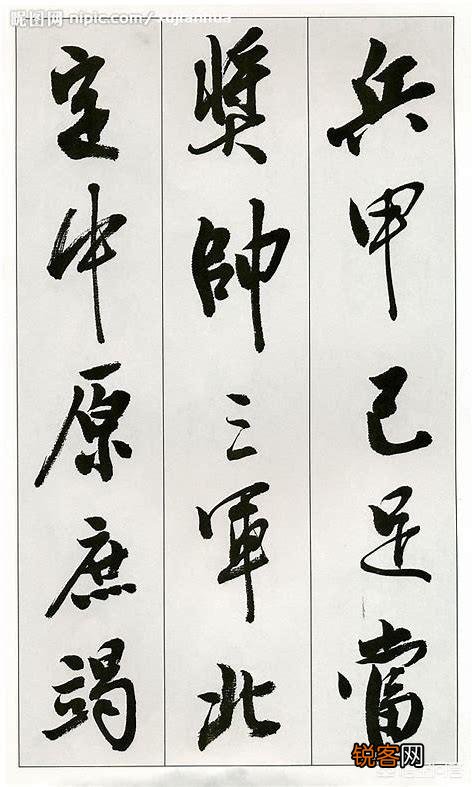 昵图网 nipic.com/xujianhua
兵甲已足當
獎帥三軍北
定中原庶竭
锐客网